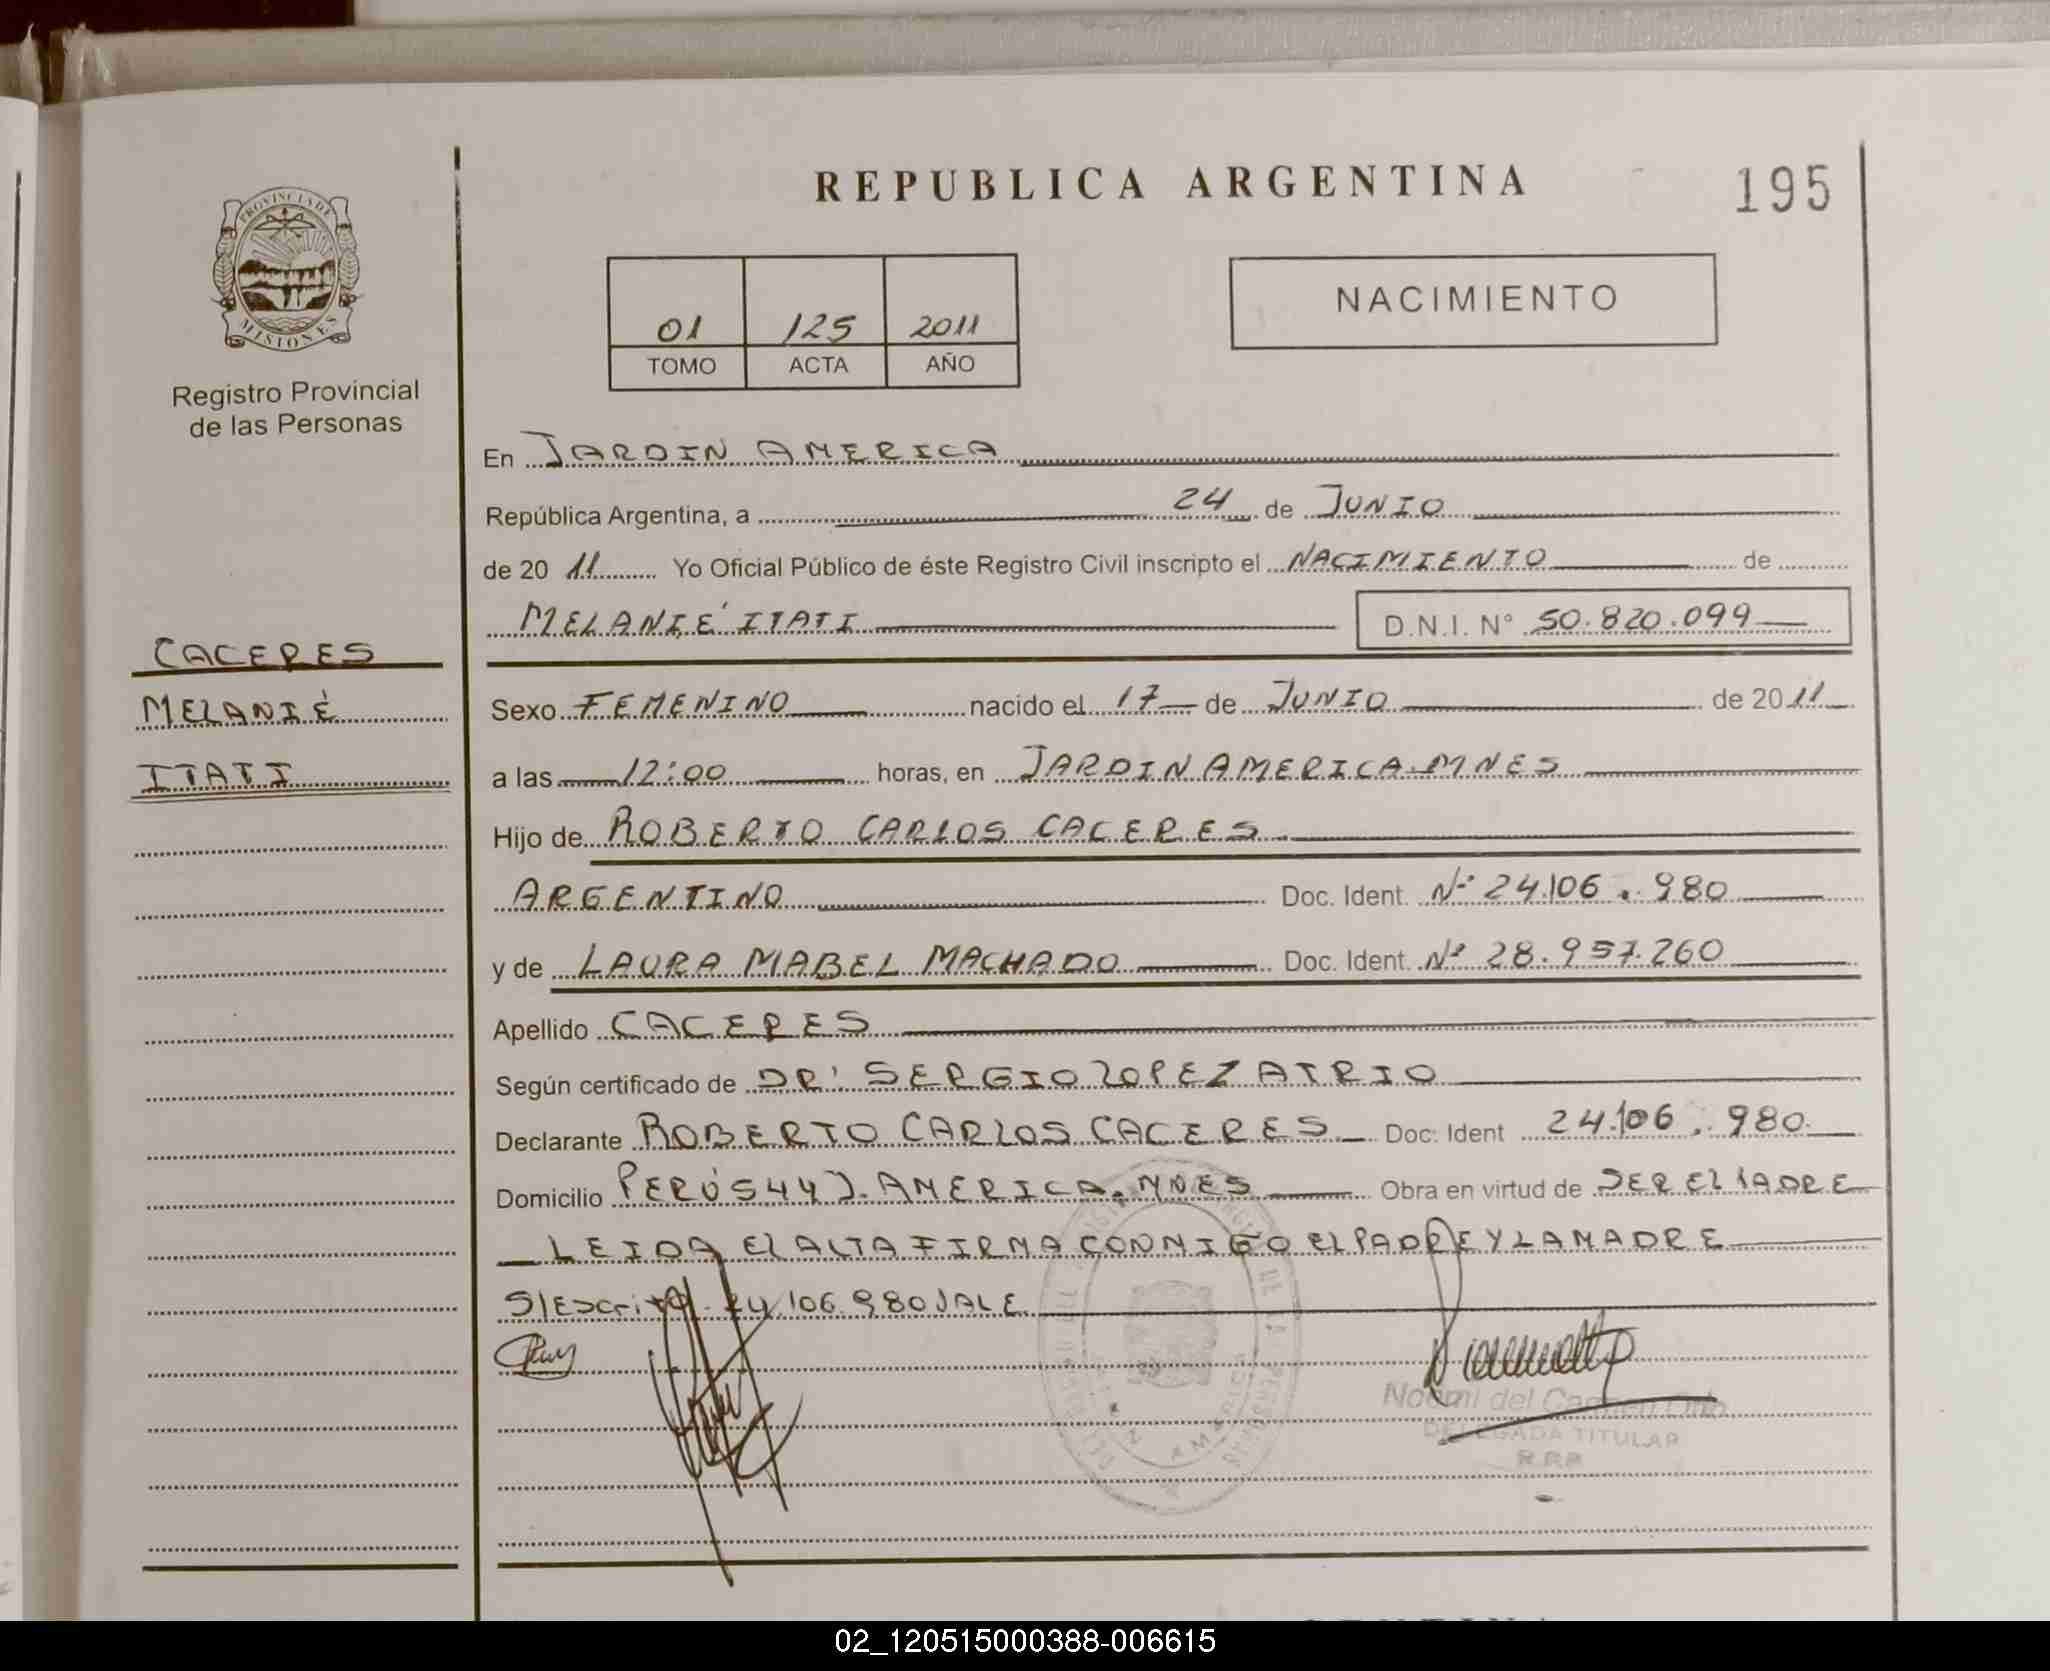 REPUBLICA ARGENTINA
195
PROVINCIA DE
MISIONES
Registro Provincial
de las Personas
01 125 2011
TOMO ACTA AÑO
NACIMIENTO
En JARDIN AMERICA
República Argentina, a 24 de JUNIO
de 20 11 Yo Oficial Público de éste Registro Civil inscripto el NACIMIENTO de
MELANIÉ ITATI D.N.I. N° 50.820.099
CACERES
MELANIÉ
ITATI
Sexo FEMENINO nacido el 17 de JUNIO de 2011
a las 12:00 horas, en JARDIN AMERICA. MNES
Hijo de ROBERTO CARLOS CACERES
ARGENTINO Doc. Ident. N° 24.106.980
y de LAURA MABEL MACHADO Doc. Ident. N° 28.957.260
Apellido CACERES
Según certificado de DR. SERGIO LOPEZ ATRIO
Declarante ROBERTO CARLOS CACERES Doc. Ident 24.106.980
Domicilio PERÚ 544 J. AMERICA. MNES Obra en virtud de SER EL PADRE
LEIDA El ALTA FIRMA CONMIGO EL PADRE Y LA MADRE
S/Escrito. 24.106.980 VALE
Noemi del Carmen
DELEGADA TITULAR
R.P.P
02_120515000388-006615